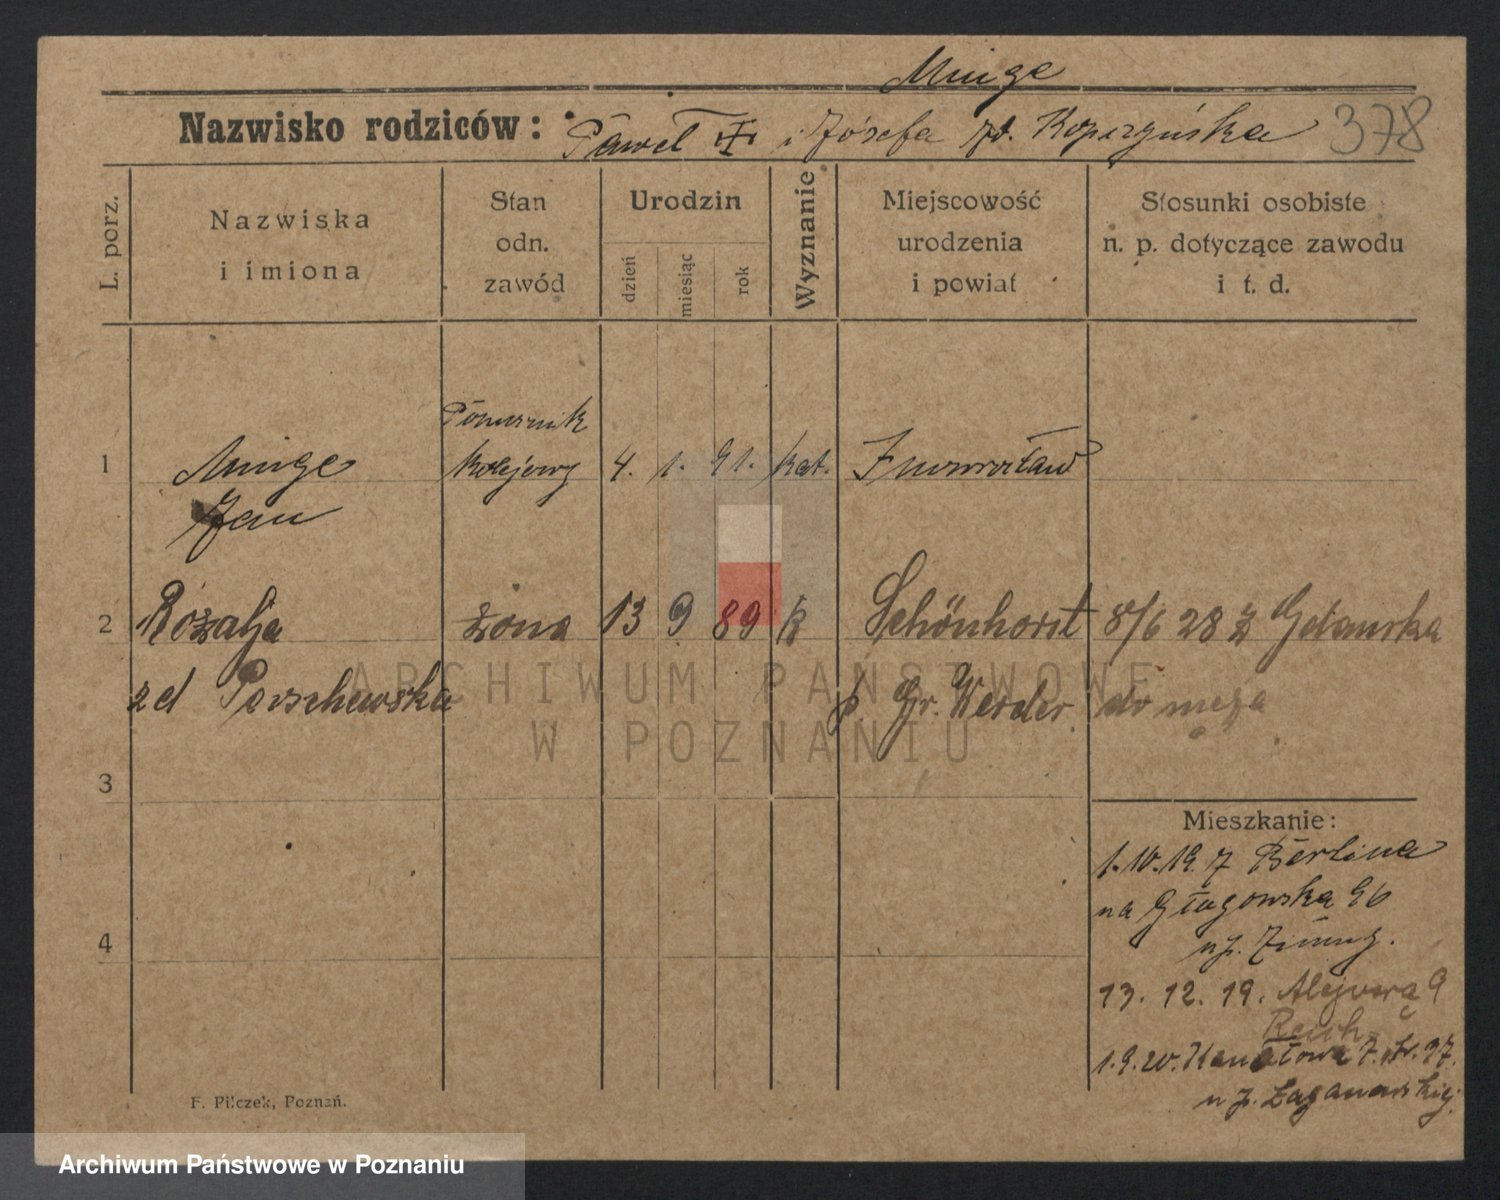 Minge
Nazwisko rodziców: Paweł i Józefa zd. Kopczyńska 378
L. porz.
Nazwiska
i imiona
Stan
odn.
zawód
Urodzin
dzień
miesiąc
rok
Wyznanie
Miejscowość
urodzenia
i powiat
Stosunki osobiste
n. p. dotyczące zawodu
i t. d.
1 Minge Pomocnik kolejowy 4. 1. 91. kat. Inowrocław
Jan
2 Rozalja żona 13 9 89 k Schönhorst 8/6 28 z Gdańska
zd Parschewska p. Gr. Werder do męża
3
4
Mieszkanie:
1.10.19. z Berlina
na Głogowska 96
u p.
13. 12. 19. Alejowa 9
1.9.20. Kanałowa 7. 37.
u p.
F. Pilczek, Poznań.
ARCHIWUM PAŃSTWOWE
W POZNANIU
Archiwum Państwowe w Poznaniu